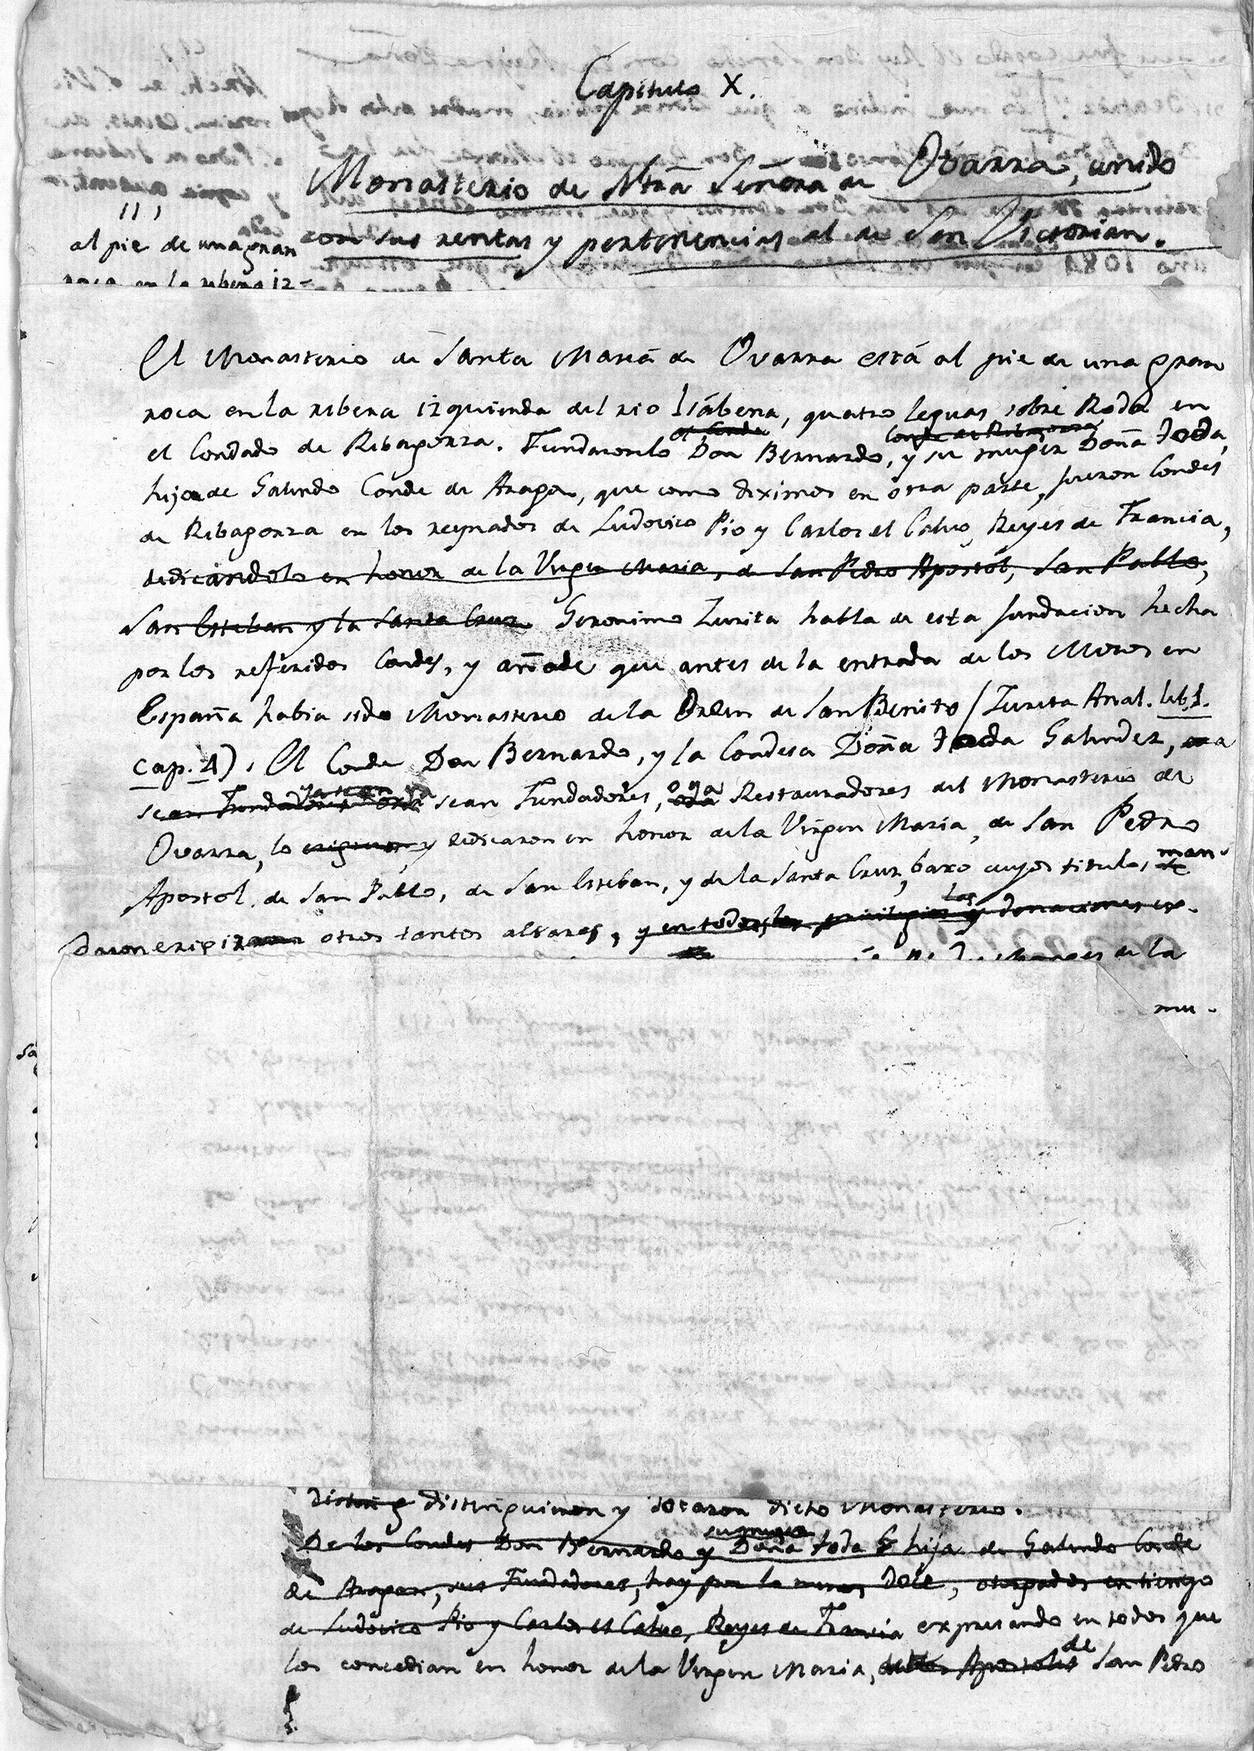 Capitulo X.
Monasterio de Ntrã Señora de Ovarra, unido
con sus rentas y pertenencias al de San Victorian.
al pie de una gran
roca en la ribera iz-
El Monasterio de Santa Maria de Ovarra está al pie de una gran
roca en la ribera izquierda del rio Isábena, quatro leguas sobre Roda en
el Condado de Ribagorza. Fundaronlo el Conde Don Bernardo, Conde de Ribagorza y su muger Doña Toda,
hija de Galindo Conde de Aragon, que como diximos en otra parte, fueron Condes
de Ribagorza en los reynados de Ludovico Pio y Carlos el Calvo, Reyes de Francia,
dedicandolo en honor de la Virgen Maria, de San Pedro Apostol, San Pablo,
San Esteban y la Santa Cruz. Geronimo Zurita habla de esta fundacion hecha
por los referidos Condes, y añade que antes de la entrada de los Moros en
España habia sido Monasterio de la Orden de San Benito (Zurita Anal. lib. 1.
cap. 4). El Conde Don Bernardo, y la Condesa Doña Toda Galindez, ya
sean Fundadores, o ya Restauradores del Monasterio de
Ovarra, lo y dedicaron en honor de la Virgen Maria, de San Pedro
Apostol, de San Pablo, de San Esteban, y de la Santa Cruz, baxo cuyos titulos man-
daron erigir otros tantos altares, y en todos los privilegios y donaciones
de la
mu-
distinguieron y dotaron dicho Monasterio.
De los Condes Don Bernardo y su muger Doña Toda hija de Galindo Conde
de Aragon, sus Fundadores, hay por lo menos doce, otorgados en tiempo
de Ludovico Pio y Carlos el Calvo, Reyes de Francia expresando en todos que
los concedian en honor de la Virgen Maria, de los Apostoles de San Pedro